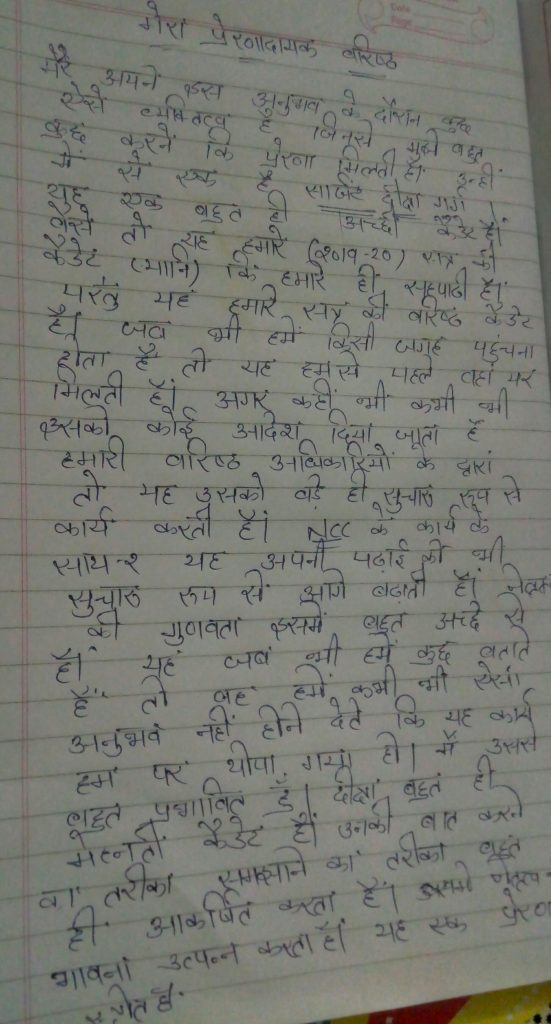 Date
Page
मेरा प्रेरणादायक वरिष्ठ
मेरे अपने इस अनुभव के दौरान कुछ
ऐसे व्यक्तित्व है जिनसे मुझे बहुत
कुछ करने कि प्रेरणा मिलती है। उन्ही
में से एक है सार्जेंट दीक्षा गर्ग।
यह एक बहुत ही अच्छी कैडेट है।
वैसे तो यह हमारे (2019-20) सत्र की
कैडेट (यानि) कि हमारे ही सहपाठी हैं।
परंतु यह हमारे सत्र की वरिष्ठ कैडेट
है। जब भी हमें किसी जगह पहुंचना
होता है तो यह हमसे पहले वहां पर
मिलती है। अगर कहीं भी कभी भी
इसको कोई आदेश दिया जाता है
हमारी वरिष्ठ अधिकारियों के द्वारा
तो यह उसको बड़े ही सुचारू रूप से
कार्य करती है। NCC के कार्य के
साथ-२ यह अपनी पढ़ाई को भी
सुचारू रूप से आगे बढ़ाती है।
की गुणवता इसमें बहुत अच्छे से
है। यह जब भी हमें कुछ बताते
है तो वह हमें कभी भी ऐसा
अनुभव नहीं होने देते कि यह कार्य
हम पर थोपा गया हो। मैं उससे
बहुत प्रभावित हूँ। दीक्षा बहुत ही
मेहनती कैडेट है। उनकी बात करने
का तरीका समझाने का तरीका बहुत
ही आकर्षित करता है।
भावना उत्पन्न करता है। यह एक
स्त्रोत है।